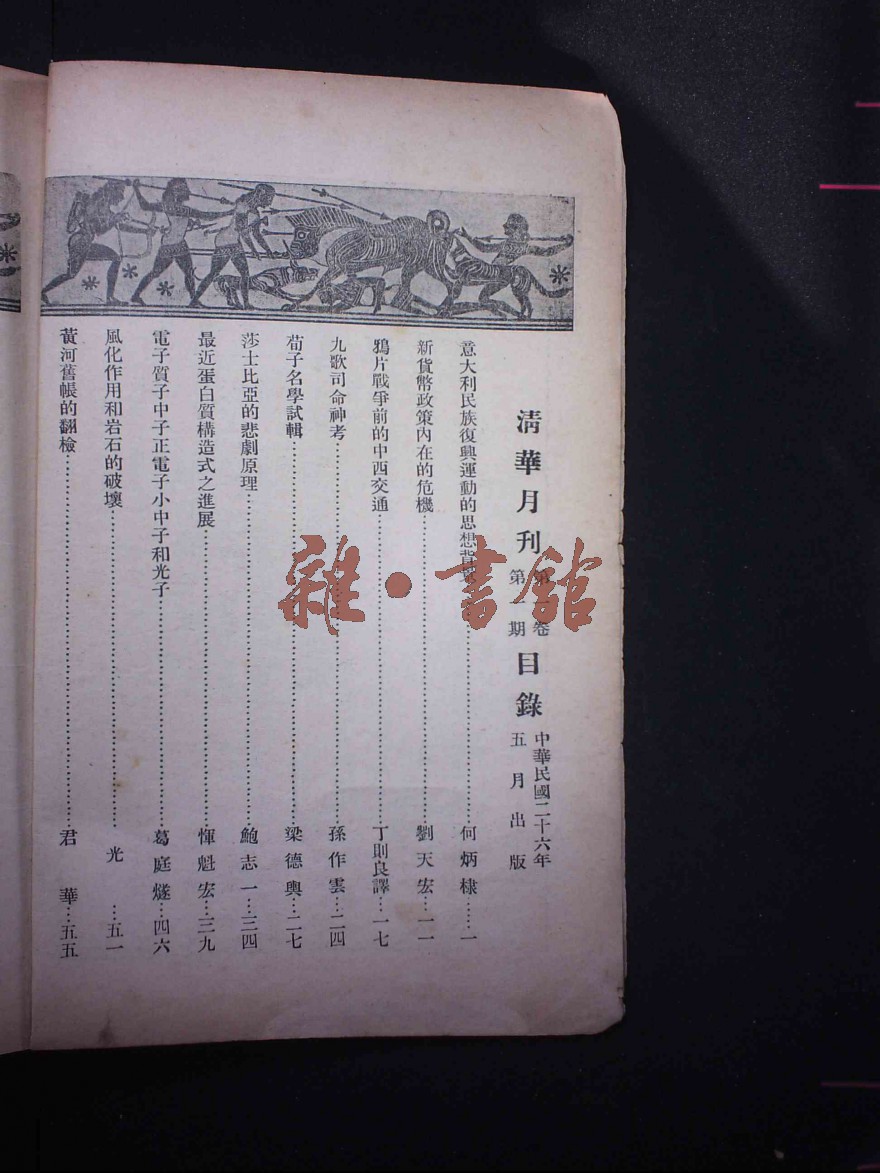 清華月刊
第 卷
第一期
目錄
中華民國二十六年
五月出版
意大利民族復興運動的思想背景……何炳棣……一
新貨幣政策內在的危機……劉天宏…一一
鴉片戰爭前的中西交通……丁則良譯…一七
九歌司命神考……孫作雲…二四
荀子名學試輯……梁德輿…二七
莎士比亞的悲劇原理……鮑志一…三四
最近蛋白質構造式之進展……惲魁宏…三九
電子質子中子正電子小中子和光子……葛庭燧…四六
風化作用和岩石的破壞……光…五一
黃河舊帳的翻檢……君華…五五
雜·書館